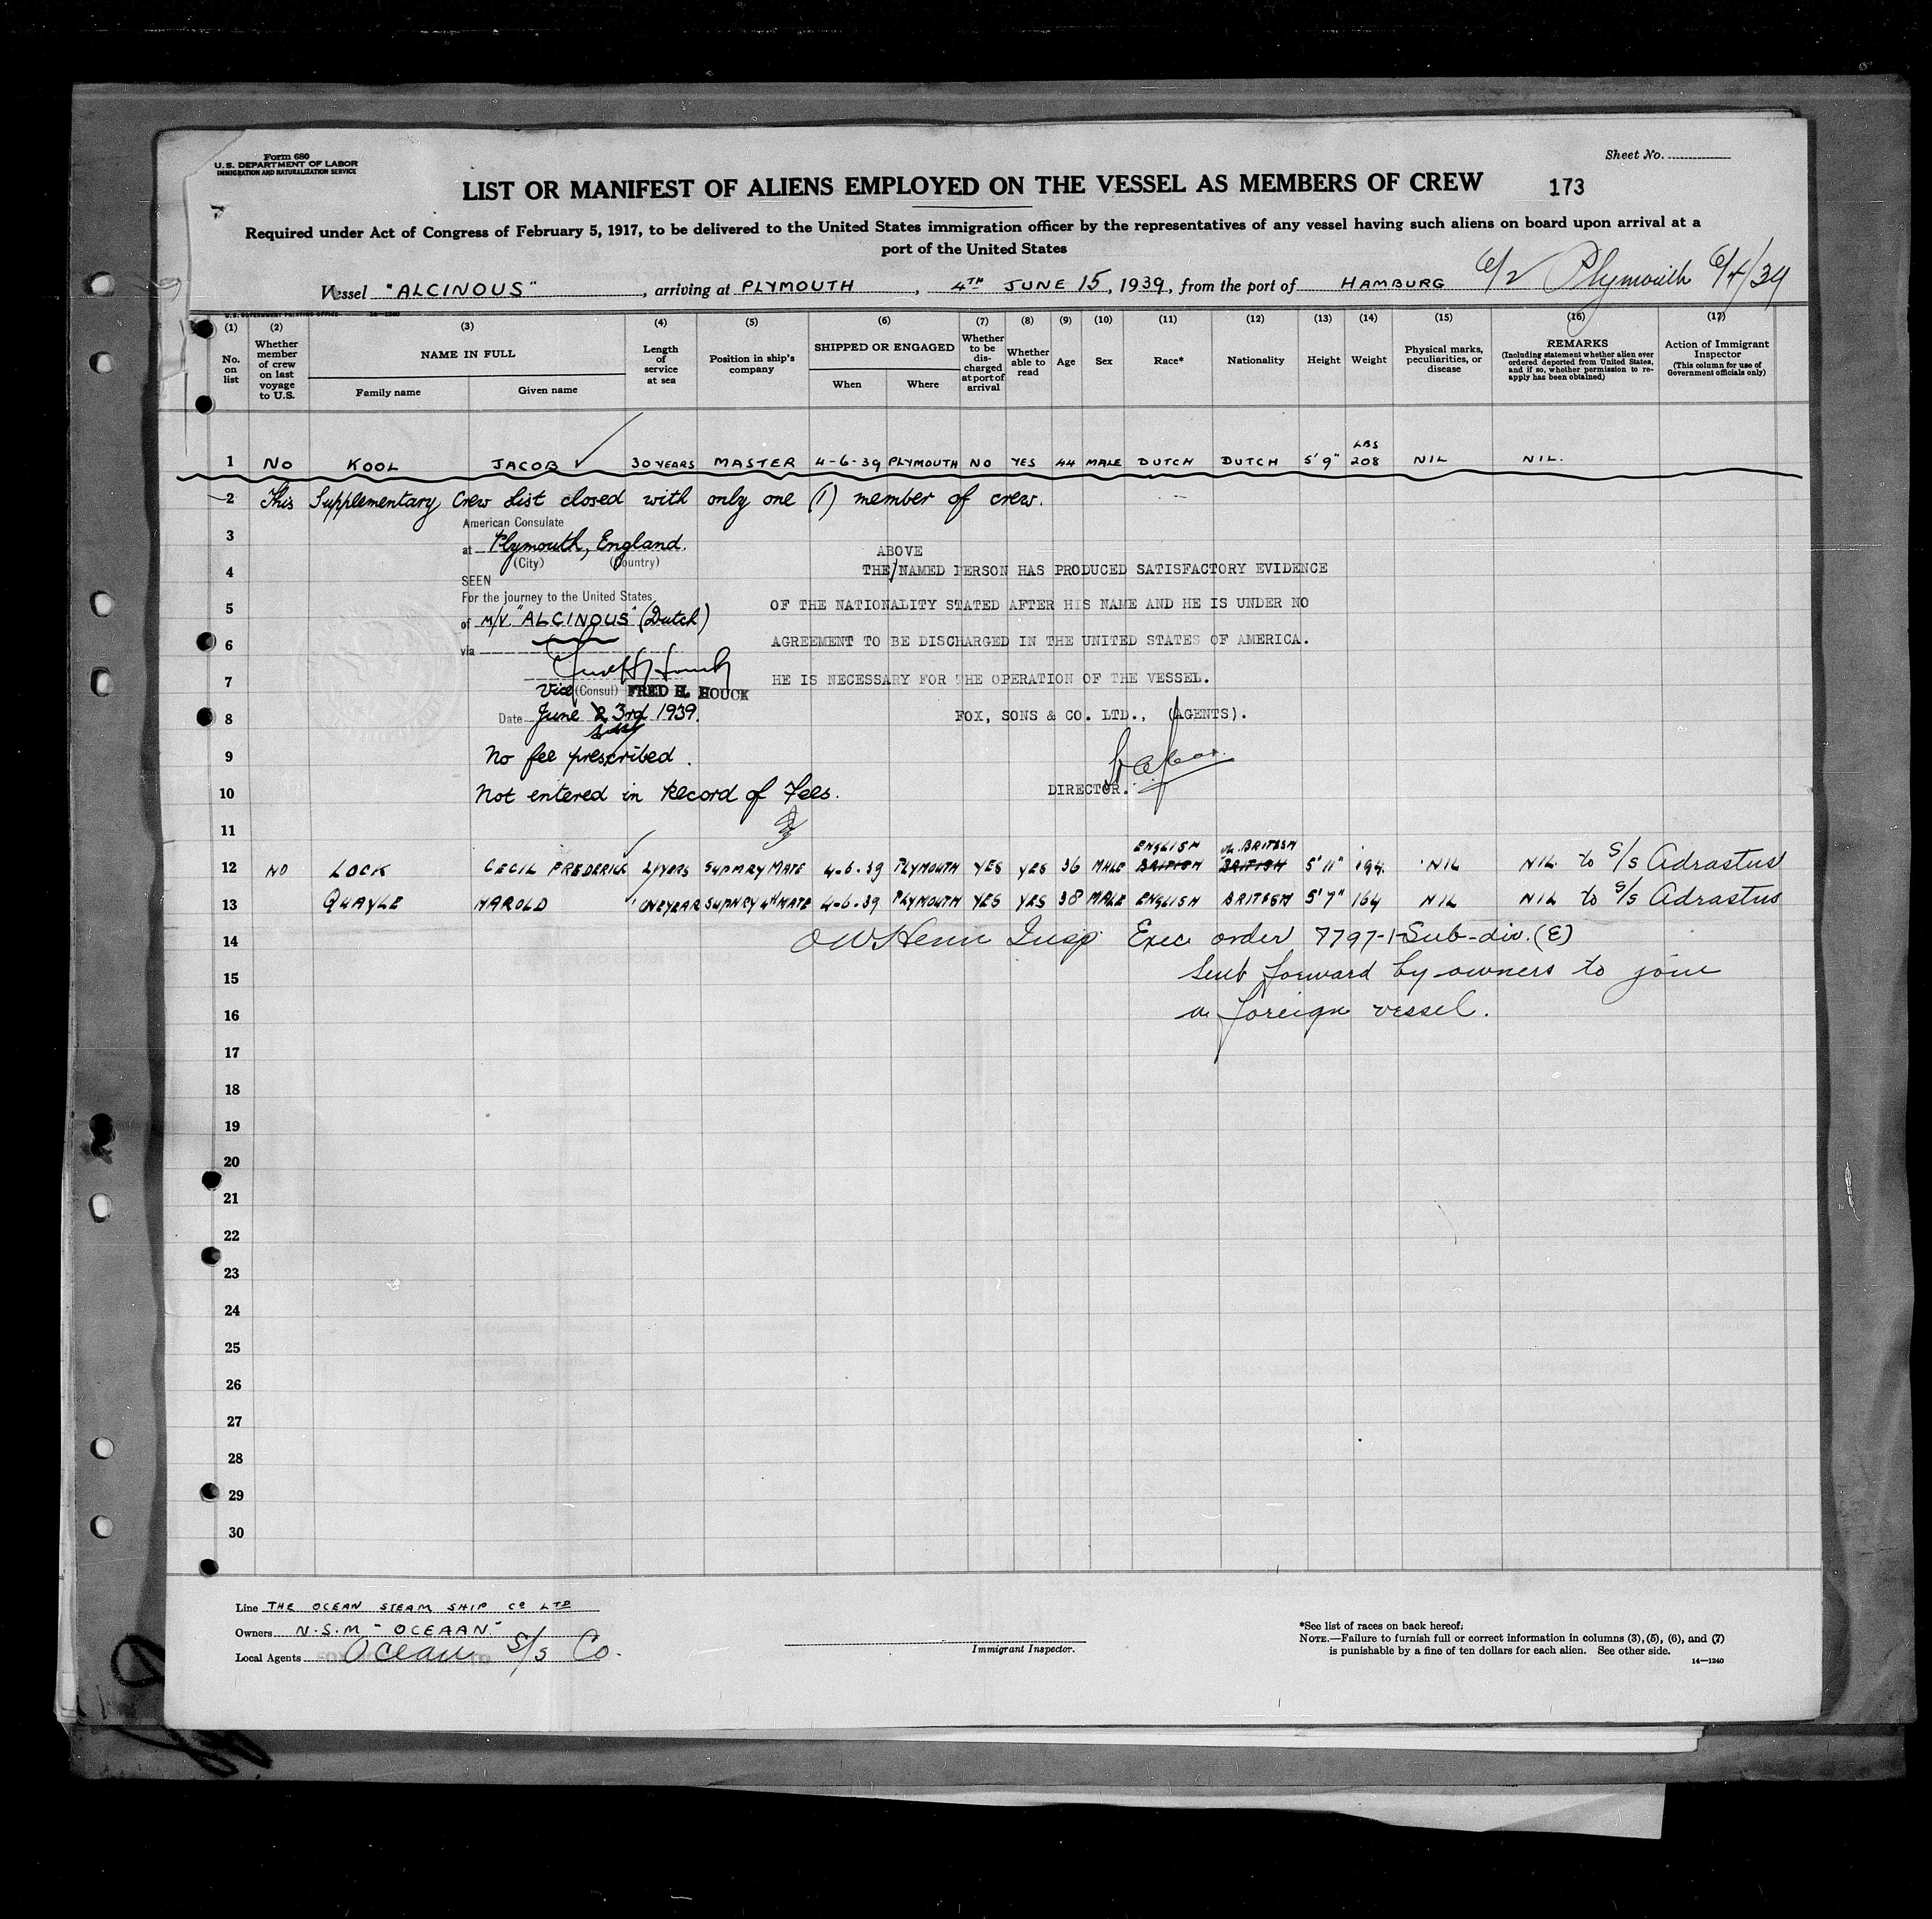 Form 680
U. S. DEPARTMENT OF LABOR
IMMIGRATION AND NATURALIZATION SERVICE
Sheet No.
LIST OR MANIFEST OF ALIENS EMPLOYED ON THE VESSEL AS MEMBERS OF CREW 173
Required under Act of Congress of February 5, 1917, to be delivered to the United States immigration officer by the representatives of any vessel having such aliens on board upon arrival at a
port of the United States
Vessel "ALCINOUS", arriving at PLYMOUTH, 4TH JUNE 15, 1939, from the port of HAMBURG Plymouth
U. S. GOVERNMENT PRINTING OFFICE 14—1240
(1) (2) (3) (4) (5) (6) (7) (8) (9) (10) (11) (12) (13) (14) (15) (16) (17)
No. on list
Whether member of crew on last voyage to U.S.
NAME IN FULL
Family name Given name
Length of service at sea
Position in ship's company
SHIPPED OR ENGAGED
When Where
Whether to be discharged at port of arrival
Whether able to read
Age
Sex
Race*
Nationality
Height
Weight
Physical marks, peculiarities, or disease
REMARKS
(Including statement whether alien ever ordered deported from United States, and if so, whether permission to re-apply has been obtained)
Action of Immigrant Inspector
(This column for use of Government officials only)
LBS
1 NO KOOL JACOB 30 YEARS MASTER 4-6-39 PLYMOUTH NO YES 44 MALE DUTCH DUTCH 5'9" 208 NIL NIL.
2 This Supplementary Crew List closed with only one (1) member of crew.
American Consulate
3 at Plymouth, England.
(City) (Country)
ABOVE
4 THE/NAMED PERSON HAS PRODUCED SATISFACTORY EVIDENCE
SEEN
For the journey to the United States
5 OF THE NATIONALITY STATED AFTER HIS NAME AND HE IS UNDER NO
of M/V. "ALCINOUS" (Dutch)
6 AGREEMENT TO BE DISCHARGED IN THE UNITED STATES OF AMERICA.
via
7 HE IS NECESSARY FOR THE OPERATION OF THE VESSEL.
Vice (Consul) FRED H. HOUCK
8 Date June 3rd 1939. FOX, SONS & CO. LTD., (AGENTS).
9 No fee prescribed.
10 Not entered in Record of Fees. DIRECTOR.
11
ENGLISH BRITISH
12 NO LOCK CECIL FREDERICK 21 YEARS SUPNRY MATE 4-6-39 PLYMOUTH YES YES 36 MALE BRITISH BRITISH 5'11" 194 NIL NIL to S/s Adrastus
13 QUAYLE HAROLD ONE YEAR SUPNRY 4th MATE 4-6-39 PLYMOUTH YES YES 38 MALE ENGLISH BRITISH 5'7" 164 NIL NIL to S/s Adrastus
14 Insp. Exec order 7797-1-Sub-div. (E)
15 Sent forward by owners to join
16 a foreign vessel.
17
18
19
20
21
22
23
24
25
26
27
28
29
30
Line THE OCEAN STEAM SHIP CO LTD
Owners N.S.M "OCEAAN"
Local Agents Ocean S/s Co.
Immigrant Inspector.
*See list of races on back hereof.
NOTE.—Failure to furnish full or correct information in columns (3), (5), (6), and (7)
is punishable by a fine of ten dollars for each alien. See other side.
14—1240